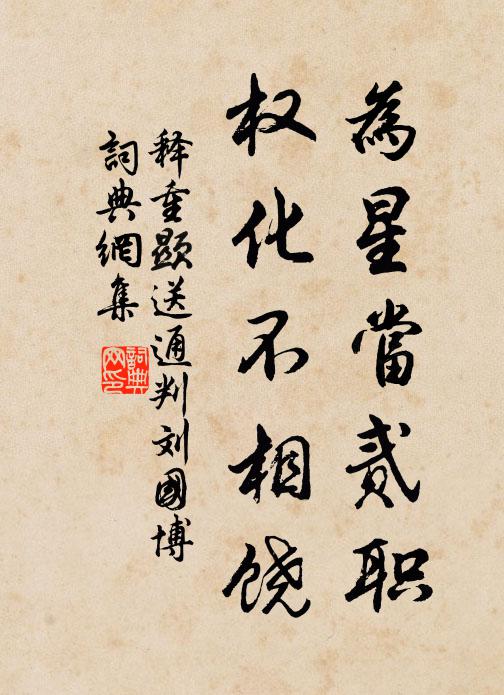 為星當贰职
权化不相饶
释重顯送通判刘國博
詞典網集
詞典网印